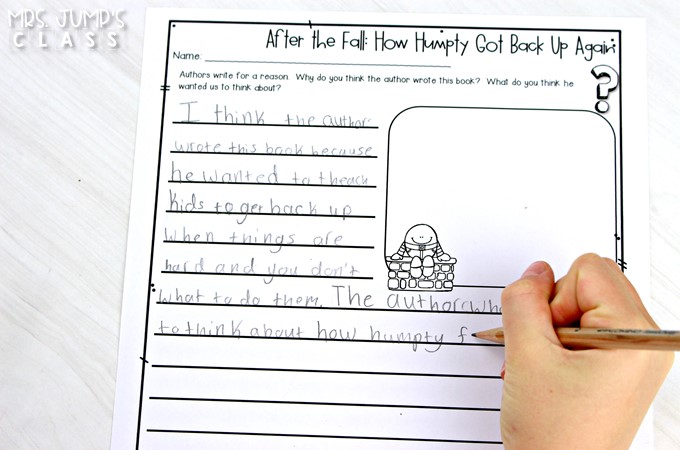 MRS. JUMP'S
CLASS
After the Fall: How Humpty Got Back Up Again
Name:
Authors write for a reason. Why do you think the author wrote this book? What do you think he
wanted us to think about?
I think the author
wrote this book because
he wanted to theach
kids to ger back up
when things are
hard and you don't
what to do them. The author
to think about how humpty f